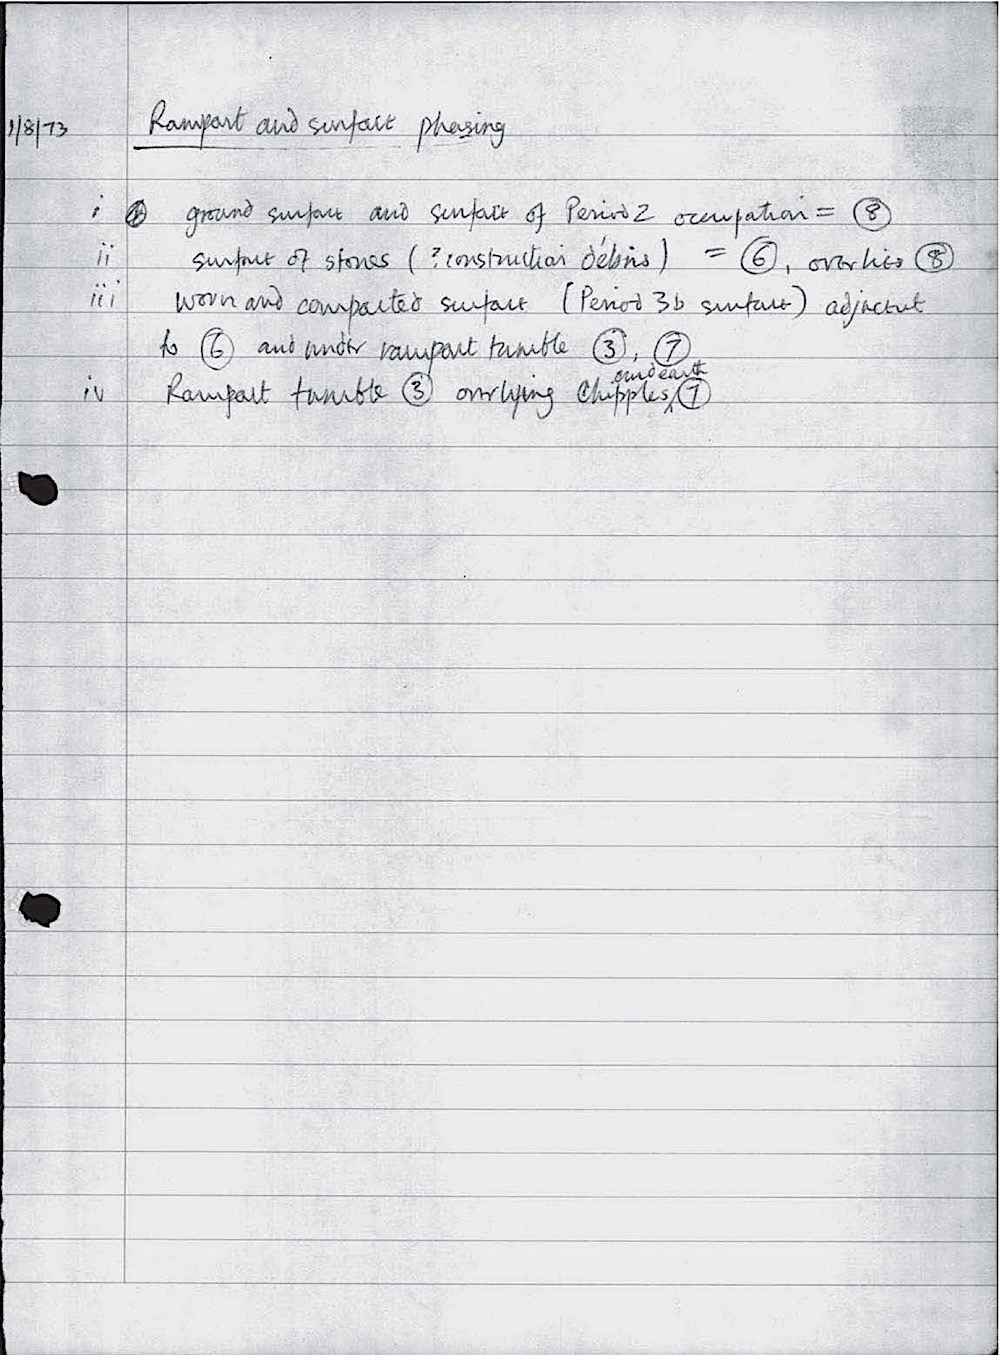 1/8/73 Rampart and surface phasing
i ground surface and surface of Period 2 occupation = ⑧
ii surface of stones (? construction débris) = ⑥, overlies ⑧
iii worn and compacted surface (Period 3b surface) adjacent
to ⑥ and under rampart tumble ③, ⑦
iv Rampart tumble ③ overlying Chipples and earth ⑦